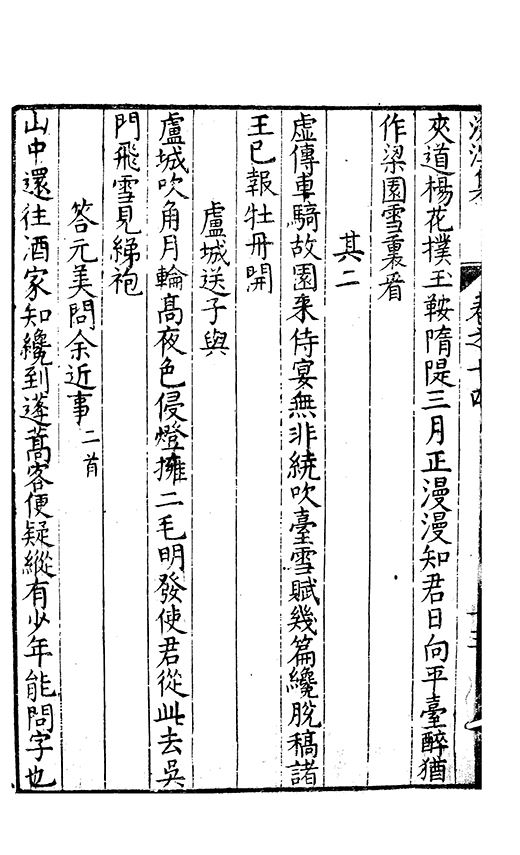 卷之十四
夾道楊花撲玉鞍隋隄三月正漫漫知君日向平臺醉猶
作梁園雪裏看
其二
虛傳車騎故園來侍宴無非繞吹臺雪賦幾篇纔脫稿諸
王已報牡丹開
盧城送子與
盧城吹角月輪高夜色侵燈擁二毛明發使君從此去吳
門飛雪見綈袍
答元美問余近事二首
山中還往酒家知纔到蓬蒿客便疑縱有少年能問字也